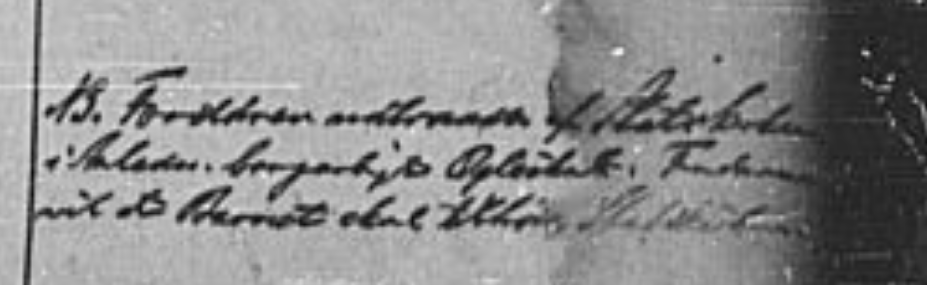 NB. Forældrene udtraadte af Statskirken
i Anledn. borgerligt Ægteskab. Faderen
vil at Barnet skal tilhøre Statskirken